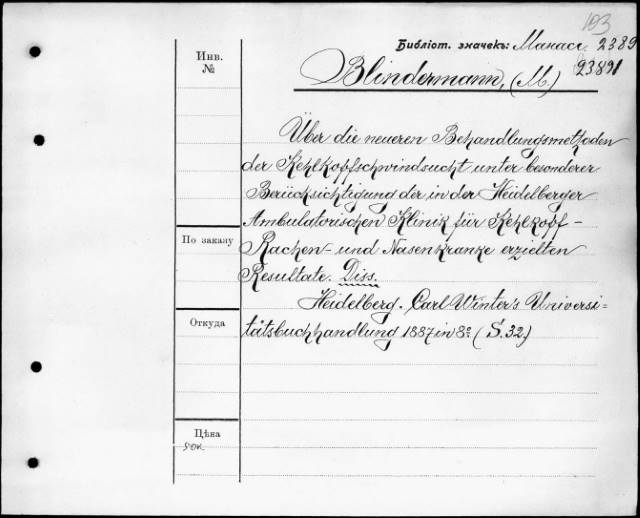 193
Библіот. значекъ: Манасс. 2389
Инв. №
Blindermann, (M.) 23891
Über die neueren Behandlungsmethoden
der Kehlkopfschwindsucht unter besonderer
Berücksichtigung der in der Heidelberger
Ambulatorischen Klinik für Kehlkopf-
По заказу
Rachen- und Nasenkranke erzielten
Resultate. Diss.
Heidelberg. Carl Winter's Universi=
Откуда
tätsbuchhandlung 1887 in 8º (S. 32.)
Цѣна
50к